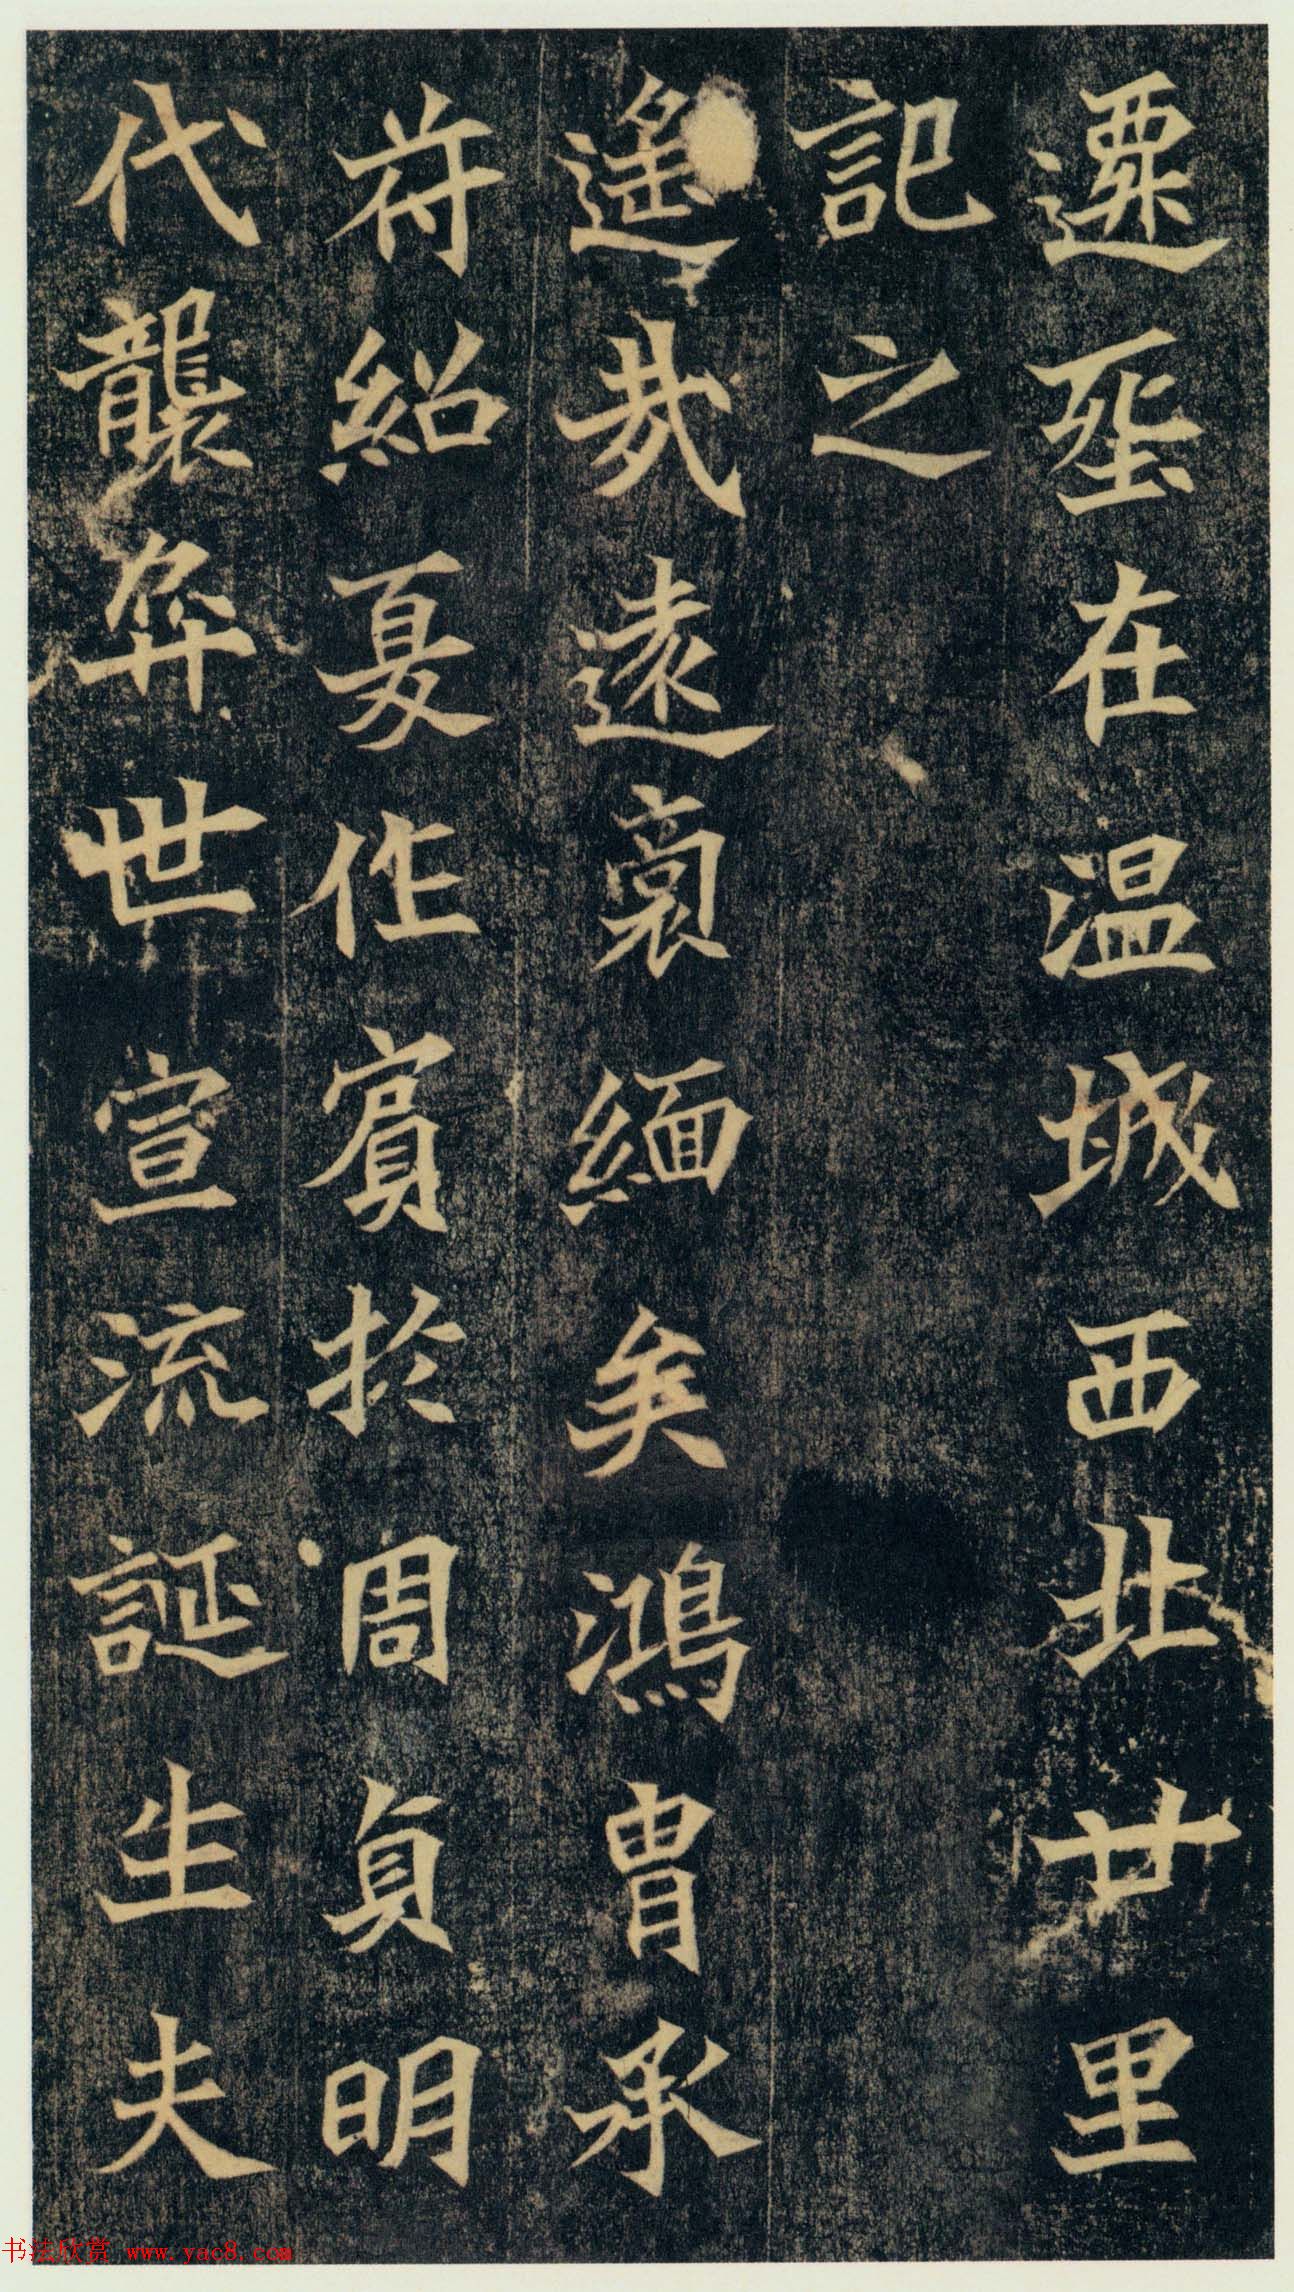 遷葬在温城西北廿里
記之
遙哉遠裔緬矣鴻胄承
苻紹夏作賓於周貞明
代襲弈世宣流誕生夫
书法欣赏 www.yac8.com